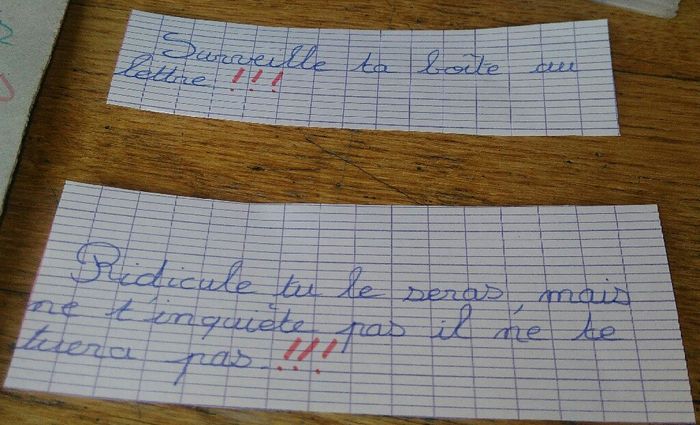 Surveille ta boîte au
lettre !!!
Ridicule tu le seras, mais
ne t'inquiète pas il ne te
tuera pas !!!